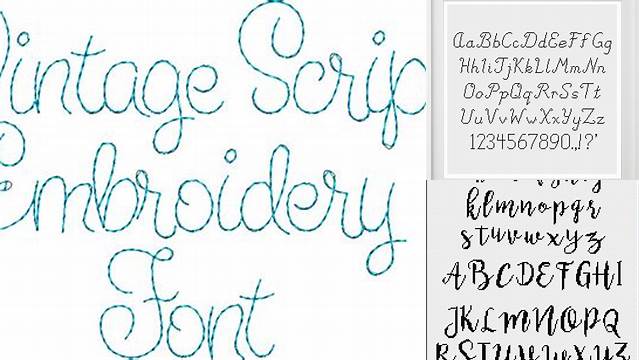 Vintage Script
Embroidery
Font
AaBbCcDdEeFfGg
HhIiJjKkLlMmNn
OoPpQqRrSsTt
UuVvWwXxYyZz
1234567890.,!?'
klmnopqr
stuvwxyz
ABCDEFGHI
JKLMNOPQ
RSTUVWXYZ